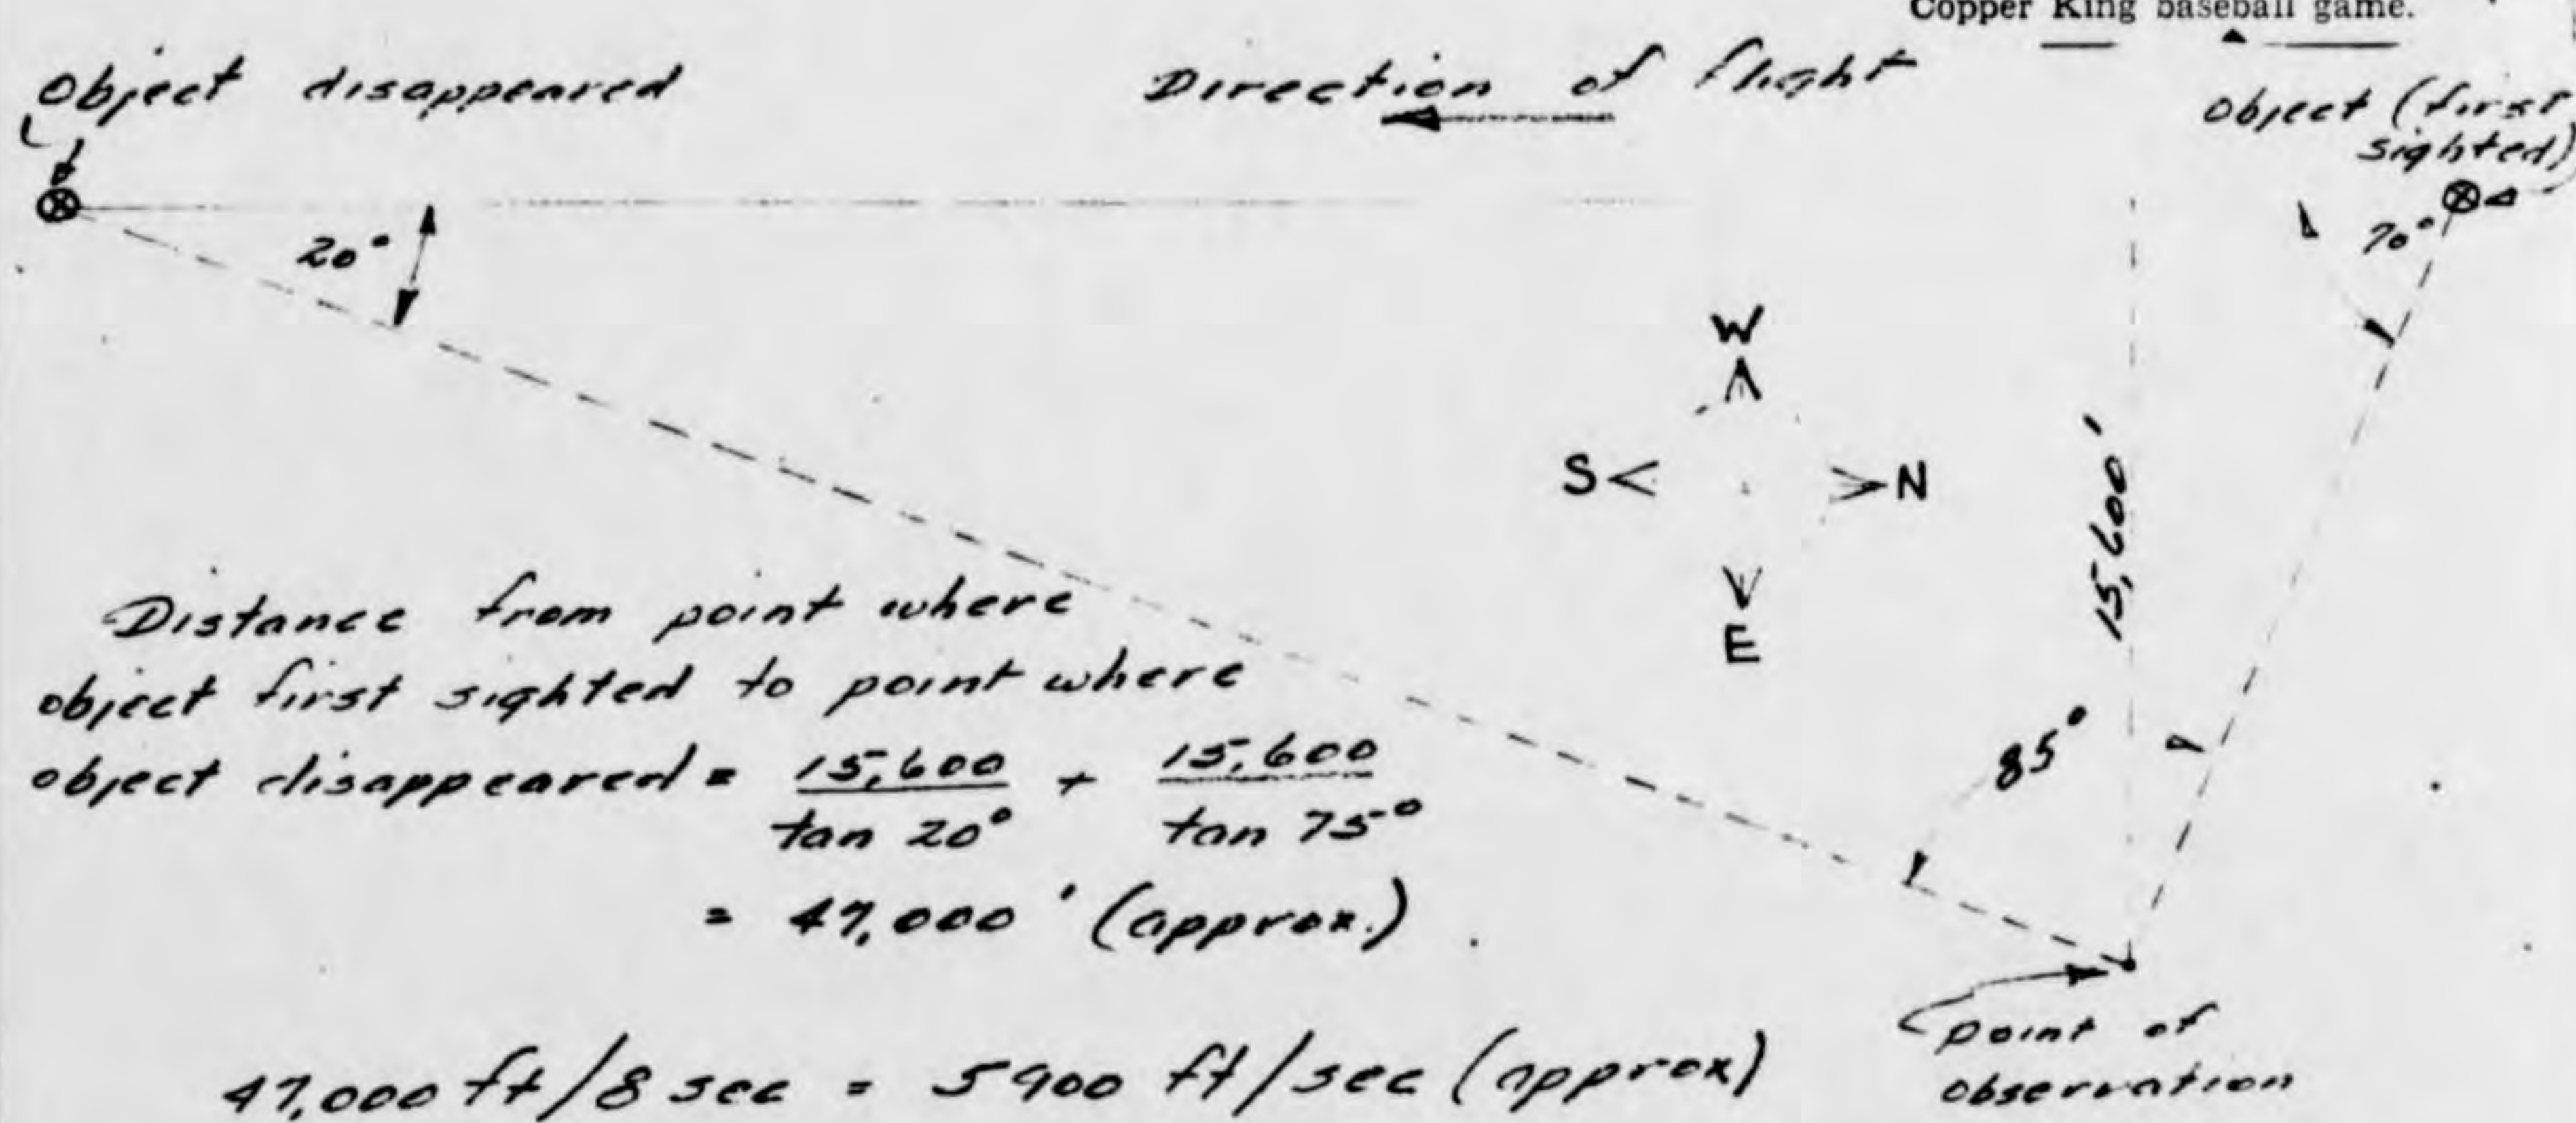 Copper King baseball game.
Object disappeared
Direction of flight
Object (first
sighted)
20°
70°
W
S
N
E
15,600'
85°
Distance from point where
object first sighted to point where
object disappeared = 15,600 / tan 20° + 15,600 / tan 75°
= 47,000' (approx.)
47,000 ft/8 sec = 5900 ft/sec (approx)
point of
observation